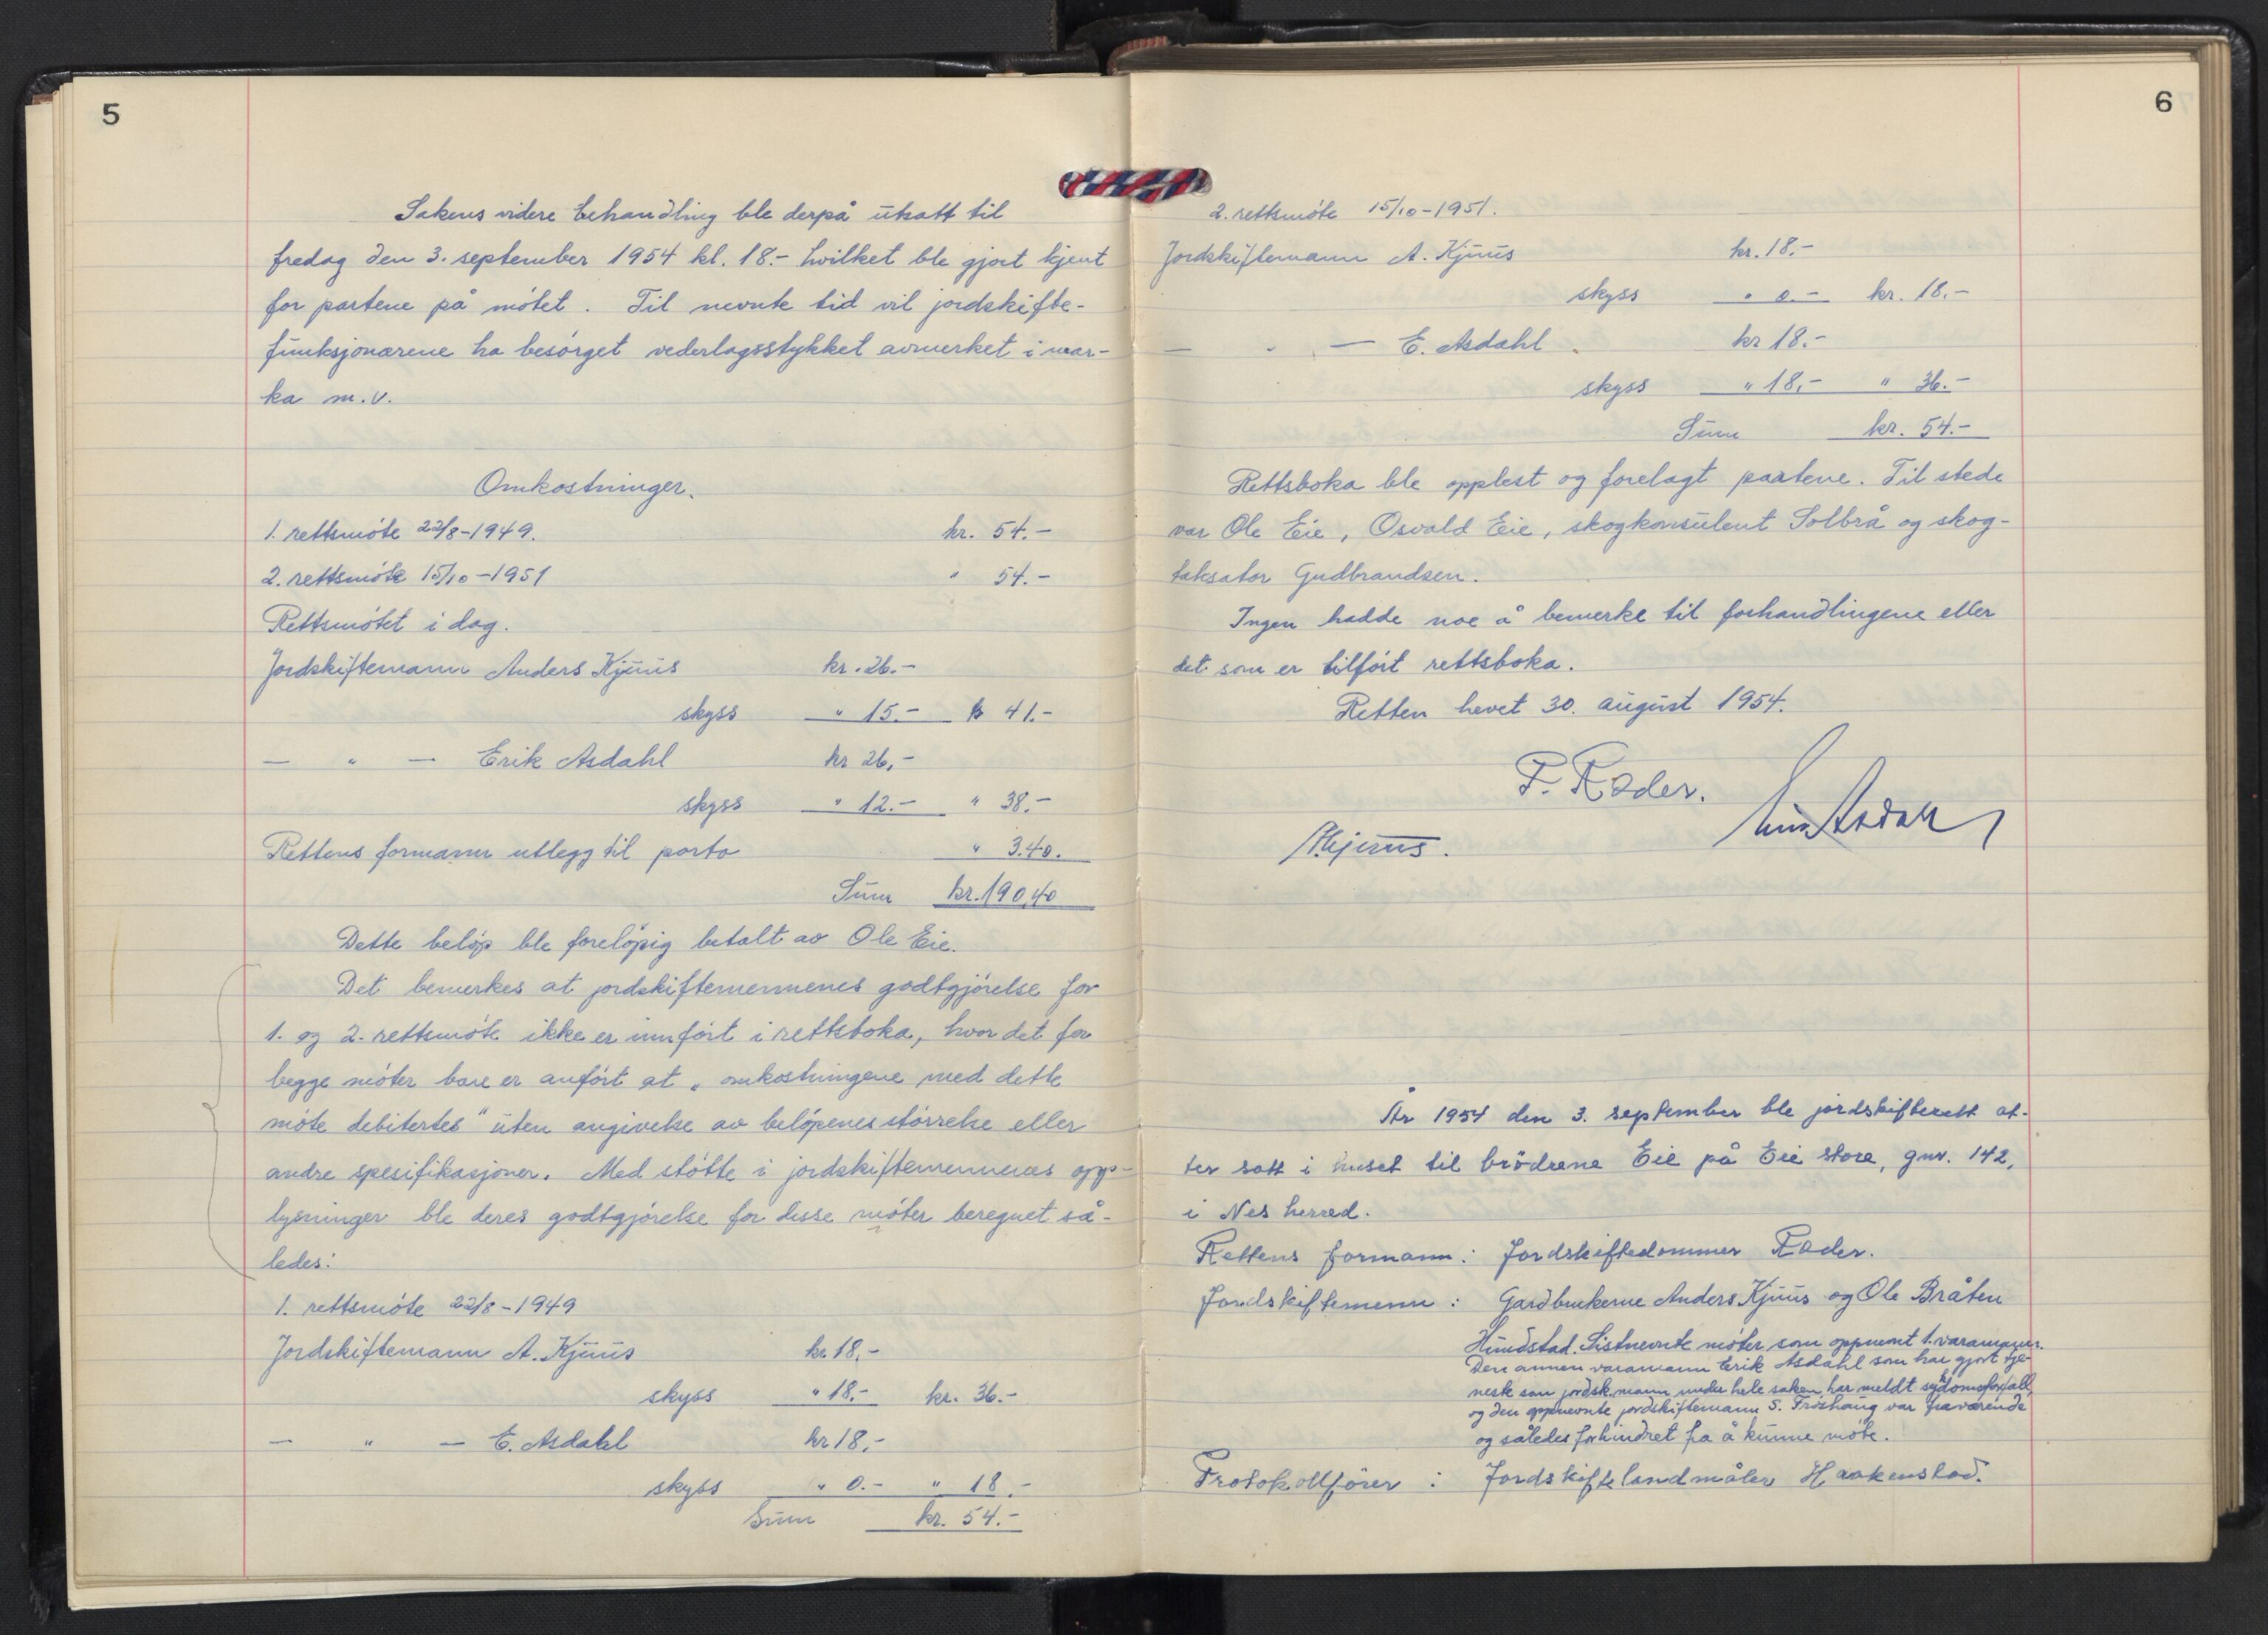 5
Sakens videre behandling ble derpå utsatt til
fredag den 3. september 1954 kl. 18.- hvilket ble gjort kjent
for partene på møtet. Til nevnte tid vil jordskifte-
funksjonærene ha besørget vederlagsstykket avmerket i mar-
ka m.v.
Omkostninger.
1. rettsmøte 22/8-1949. kr. 54.-
2. rettsmøte 15/10-1951 " 54.-
Rettsmøtet i dag.
Jordskiftemann Anders Kjuus kr. 26.-
skyss " 15.- kr 41.-
— " — Erik Asdahl kr 26,-
skyss " 12.- " 38.-
Rettens formann utlegg til porto " 3.40.
Sum kr. 190,40
Dette beløp ble foreløpig betalt av Ole Eie.
Det bemerkes at jordskiftemennenes godtgjørelse for
1. og 2. rettsmøte ikke er innført i rettsboka, hvor det for
begge møter bare er anført at „omkostningene med dette
møte debitertes" uten angivelse av beløpenes størrelse eller
andre spesifikasjoner. Med støtte i jordskiftemennenes opp-
lysninger ble deres godtgjørelse for disse møter beregnet så-
ledes:
1. rettsmøte 22/8-1949
Jordskiftemann A. Kjuus kr. 18,-
skyss " 18.- kr. 36.-
— " — E. Asdahl kr 18,-
skyss " 0.- " 18.-
Sum kr. 54.-
6
2. rettsmøte 15/10-1951.
Jordskiftemann A. Kjuus kr. 18.-
skyss " 0.- kr. 18.-
— " — E. Asdahl kr 18.-
skyss " 18,- " 36.-
Sum kr. 54.-
Rettsboka ble opplest og forelagt partene. Til stede
var Ole Eie, Osvald Eie, skogkonsulent Solbrå og skog-
taksator Gudbrandsen.
Ingen hadde noe å bemerke til forhandlingene eller
det som er tilført rettsboka.
Retten hevet 30. august 1954.
F. Ræder.
Erik Asdahl
A Kjuus.
År 1954 den 3. september ble jordskifterett at-
ter satt i huset til brødrene Eie på Eie store, gnr. 142,
i Nes herred.
Rettens formann: Jordskiftedommer Ræder.
Jordskiftemenn: Gardbrukerne Anders Kjuus og Ole Bråten
Hundstad. Sistnevnte møter som oppnevnt 1. varamann.
Den annen varamann Erik Asdahl som har gjort tje-
neste som jordsk.mann under hele saken, har meldt sykdomsforfall,
og den oppnevnte jordskiftemann S. Frøshaug var fraværende
og således forhindret fra å kunne møte.
Protokollfører: Jordskiftelandmåler Haakenstad.